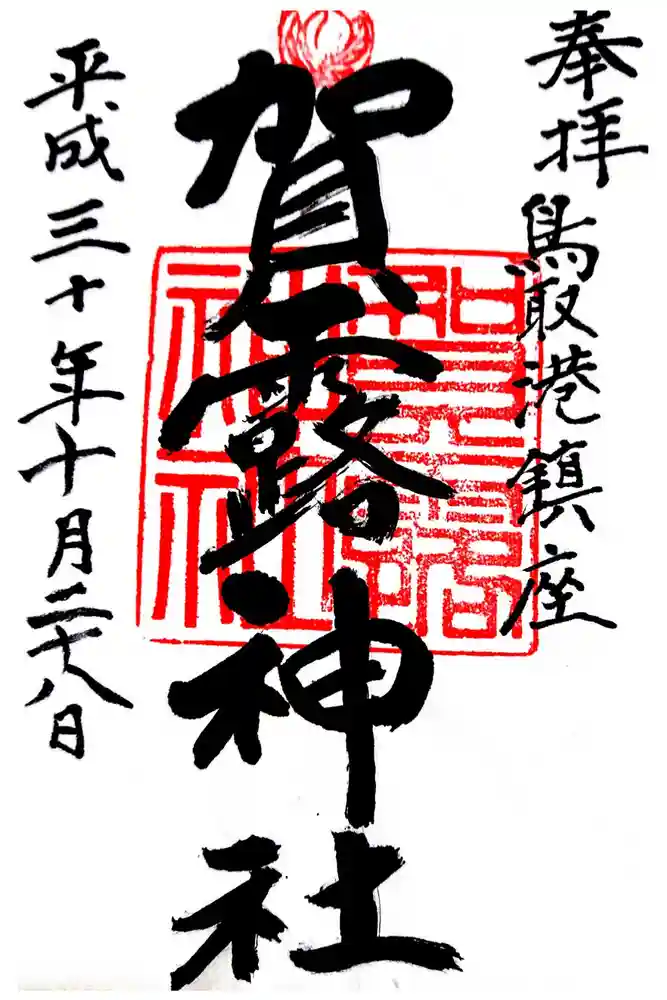 奉拝
鳥取港鎮座
賀露神社
賀露神社
平成三十年十月二十八日